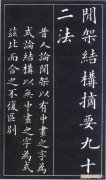 間架結構摘要九十
二法
昔人論間架以有申書之字爲
式論結構以無申畫之字爲式
註此而合之不復區別